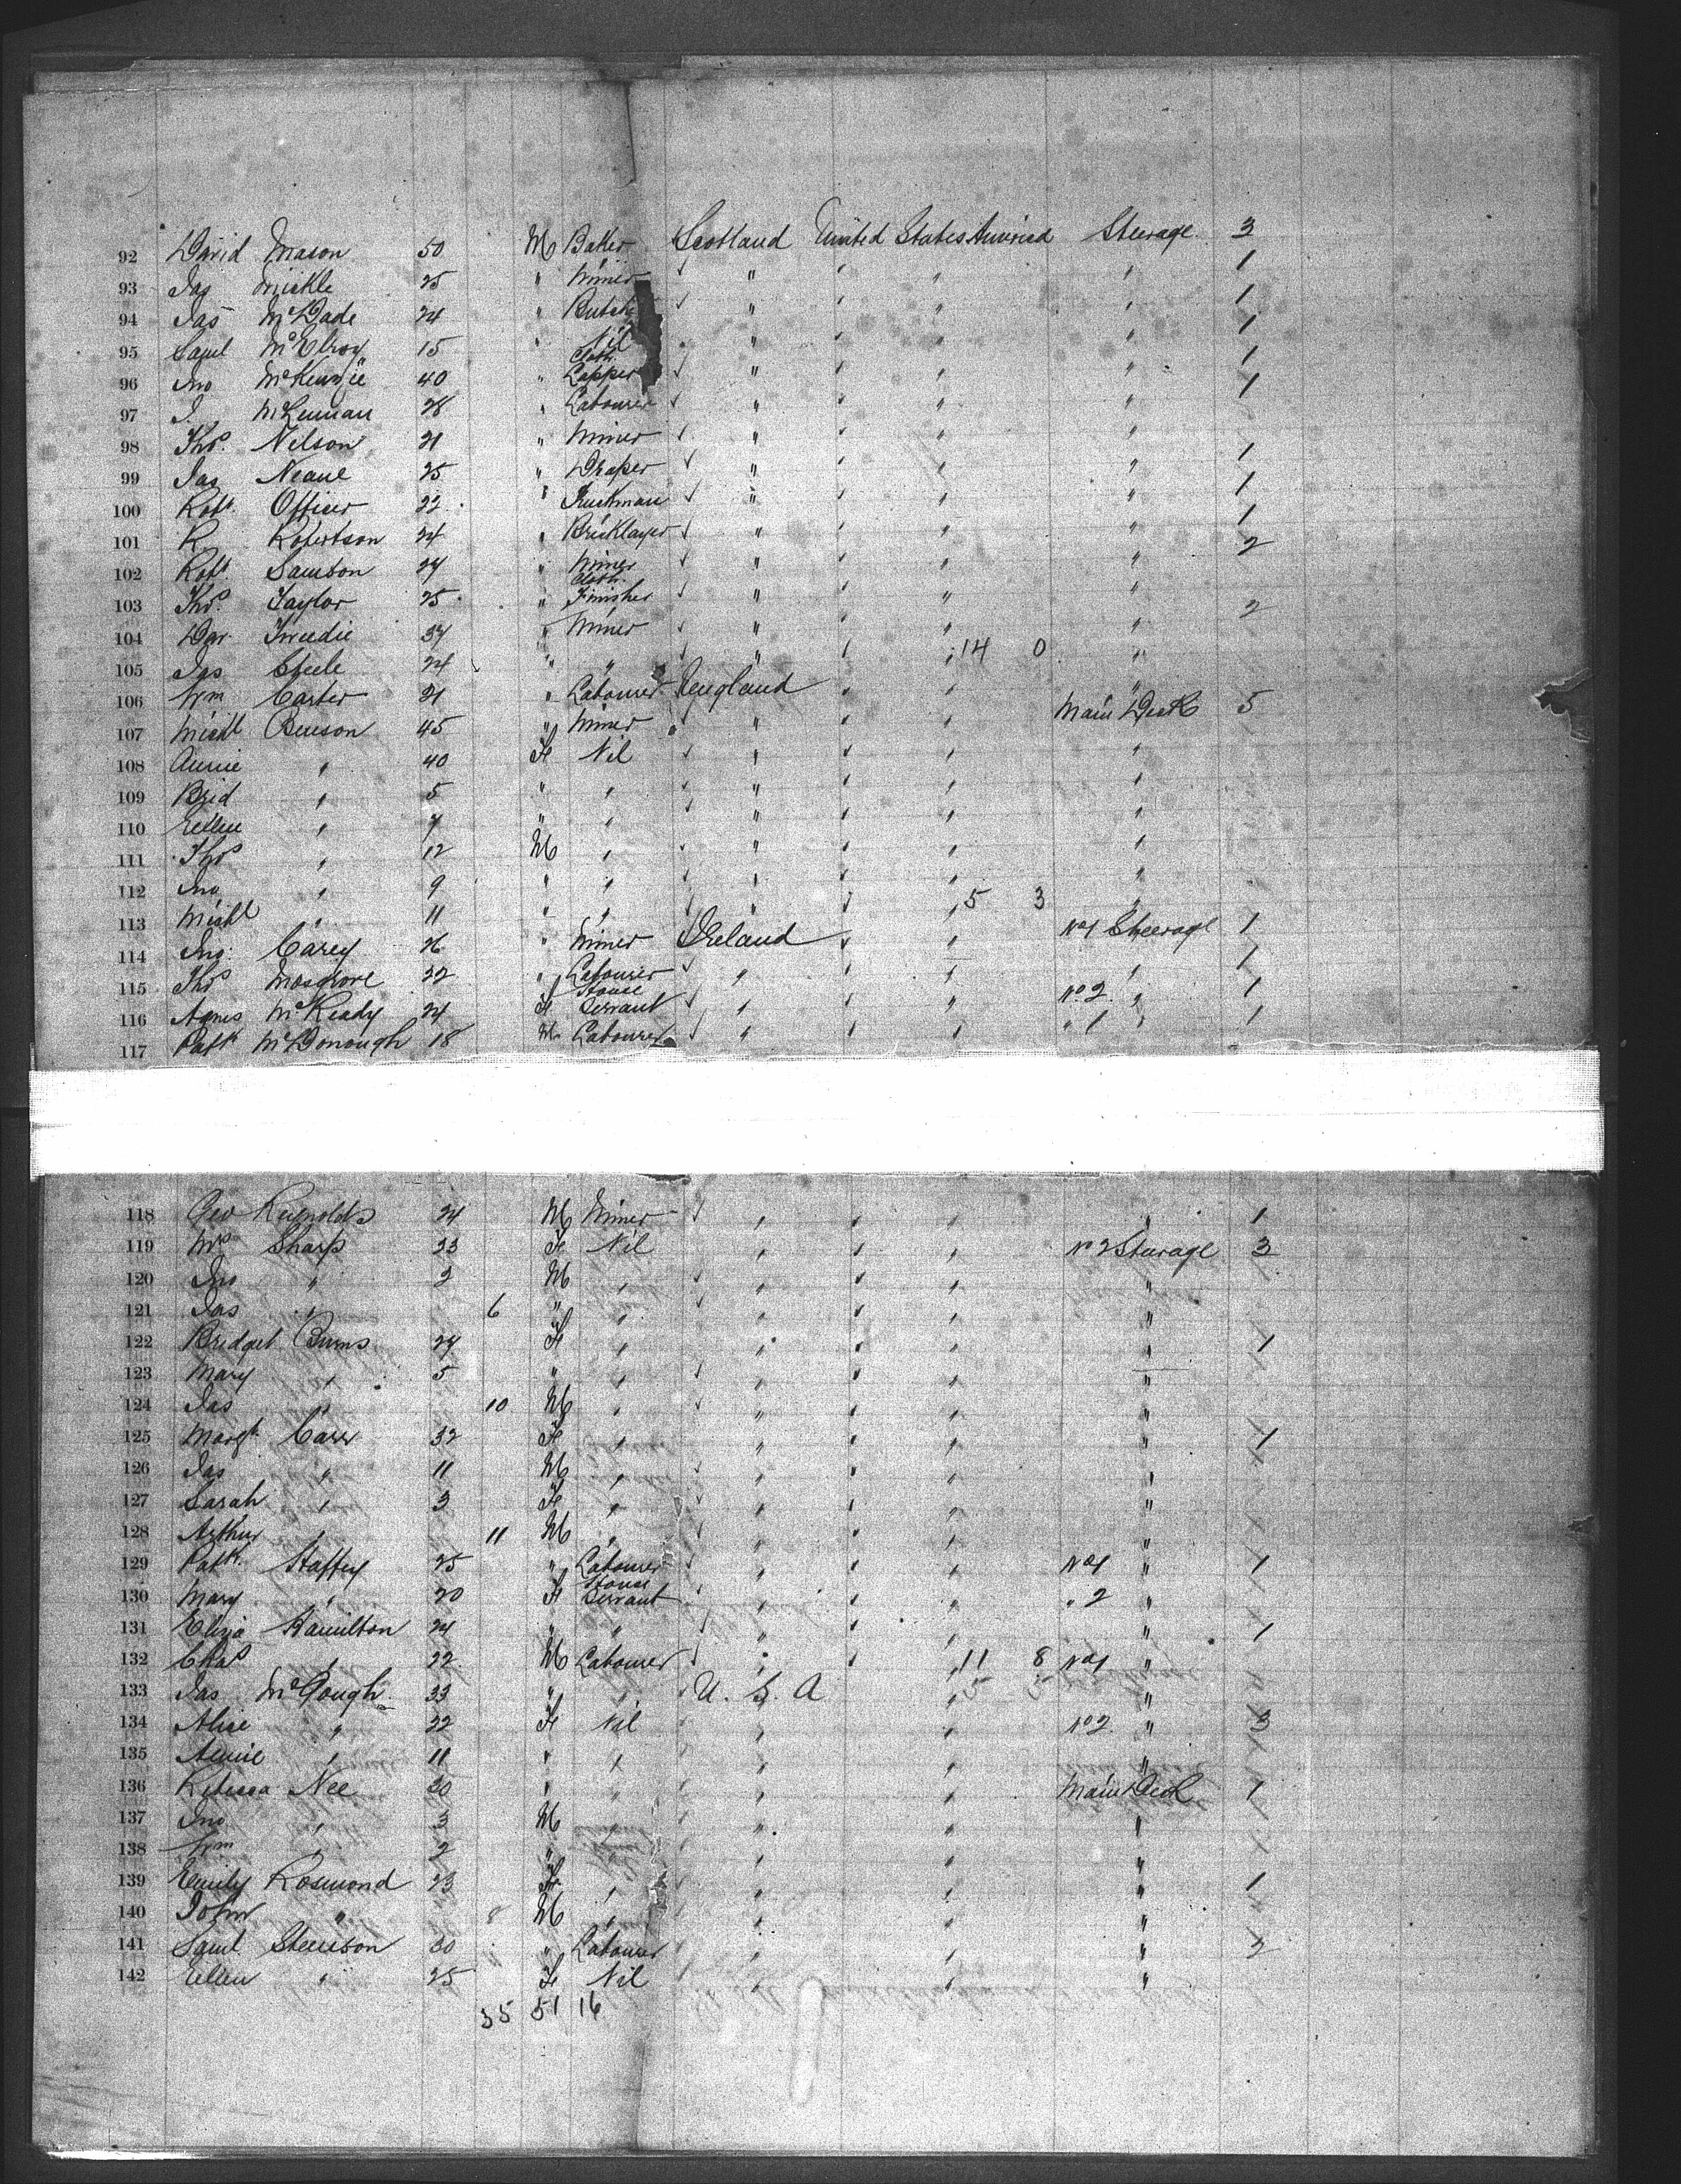 92 David Mason 50 M Baker Scotland United States America Steerage 3
93 Jas Mickle 25 " Miner " " " " 1
94 Jas McDade 24 " Butch " " " " 1
95 Saml McElroy 15 " Nil " " " " 1
96 Jno McKenzie 40 " Cloth Lapper " " " " 1
97 J. McLennan 28 " Labourer " " " " 1
98 Thos. Nelson 21 " Miner " " " "
99 Jas Neave 25 " Draper " " " " 1
100 Robt. Officer 22 " Truckman " " " " 1
101 R. Robertson 24 " Bricklayer " " " " 1
102 Robt. Samson 24 " Miner " " " " 2
103 Thos. Taylor 25 " Cloth Finisher " " " "
104 Dav. Tweedie 34 " Miner " " " " 2
105 Jas Steele 24 " " " " " 14 0 "
106 Wm Carter 21 " Labourer England " " "
107 Michl Benson 45 " Miner " " " Main Deck 5
108 Annie " 40 F Nil " " " "
109 Brid " 5 " " " " " "
110 Ellen " 7 " " " " " "
111 Thos " 12 M " " " " "
112 Jno " 9 " " " " " "
113 Michl " 11 " " " " " 5 3 "
114 Jno. Carey 26 " Miner Ireland " " No 1 Steerage 1
115 Thos Mosgrove 32 " Labourer " " " " 1
116 Agnes McKeady 24 F House Servant " " " No 2 " 1
117 Patk McDonough 18 M Labourer " " " " 1 " 1
118 Geo Reynolds 24 M Miner " " " " 1
119 Mrs Sharp 23 F Nil " " " No 2 Steerage 3
120 Jno " 2 M " " " " "
121 Jas " 6 " " " " " "
122 Bridget Burns 24 F " " " " " 1
123 Mary " 5 " " " " " "
124 Jas " 10 M " " " " "
125 Margt. Carr 32 F " " " " " 1
126 Jas " 11 M " " " " "
127 Sarah " 3 F " " " " "
128 Arthur " 11 M " " " " "
129 Patk. Staffey 25 " Labourer " " " No 1 " 1
130 Mary " 20 F House Servant " " " " 2 "
131 Eliza Hamilton 24 " " " " " " 1
132 Chas " 22 M Labourer " " " 11 8 No 1 "
133 Jas McGough 33 " " U. S. A " "
134 Alice " 22 F Nil " " No 2 " 3
135 Annie " 11 " " " " "
136 Rebecca Nee 30 " " " " Main Deck 1
137 Jno " 3 M " " " "
138 Wm " 2 " " " " "
139 Emily Rosmond 23 F " " " " 1
140 John " 8 M " " " "
141 Saml Stenson 30 " Labourer " " " 2
142 Ellen " 25 F Nil " " "
35 51 16